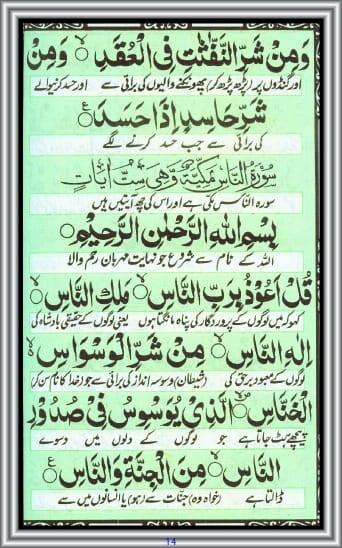 وَمِنْ شَرِّ النَّفّٰثٰتِ فِی الْعُقَدِ ۙ وَمِنْ
اور گنڈوں پر (پڑھ پڑھ کر) پھونکنے والیوں کی برائی سے اور حسد کرنیوالے
شَرِّ حَاسِدٍ اِذَا حَسَدَ ۠
کی برائی سے جب حسد کرنے لگے
سُوْرَةُ النَّاسِ مَكِّيَّةٌ وَّهِيَ سِتُّ اٰيَاتٍ
سورہ الناس مکی ہے اور اس کی چھ آیتیں ہیں
بِسْمِ اللّٰهِ الرَّحْمٰنِ الرَّحِيْمِ
اللہ کے نام سے شروع جو نہایت مہربان رحم والا
قُلْ اَعُوْذُ بِرَبِّ النَّاسِ ۙ مَلِكِ النَّاسِ ۙ
کہو کہ میں لوگوں کے پروردگار کی پناہ مانگتا ہوں یعنی لوگوں کے حقیقی بادشاہ کی
اِلٰهِ النَّاسِ ۙ مِنْ شَرِّ الْوَسْوَاسِ
لوگوں کے معبود برحق کی (شیطان) وسوسہ انداز کی برائی سے جو (خدا کا نام سن کر)
الْخَنَّاسِ ۙ الَّذِیْ یُوَسْوِسُ فِیْ صُدُوْرِ
پیچھے ہٹ جاتا ہے جو لوگوں کے دلوں میں وسوسے
النَّاسِ ۙ مِنَ الْجِنَّةِ وَالنَّاسِ ۠
ڈالتا ہے (خواہ وہ) جنات سے (ہو) یا انسانوں میں سے
14